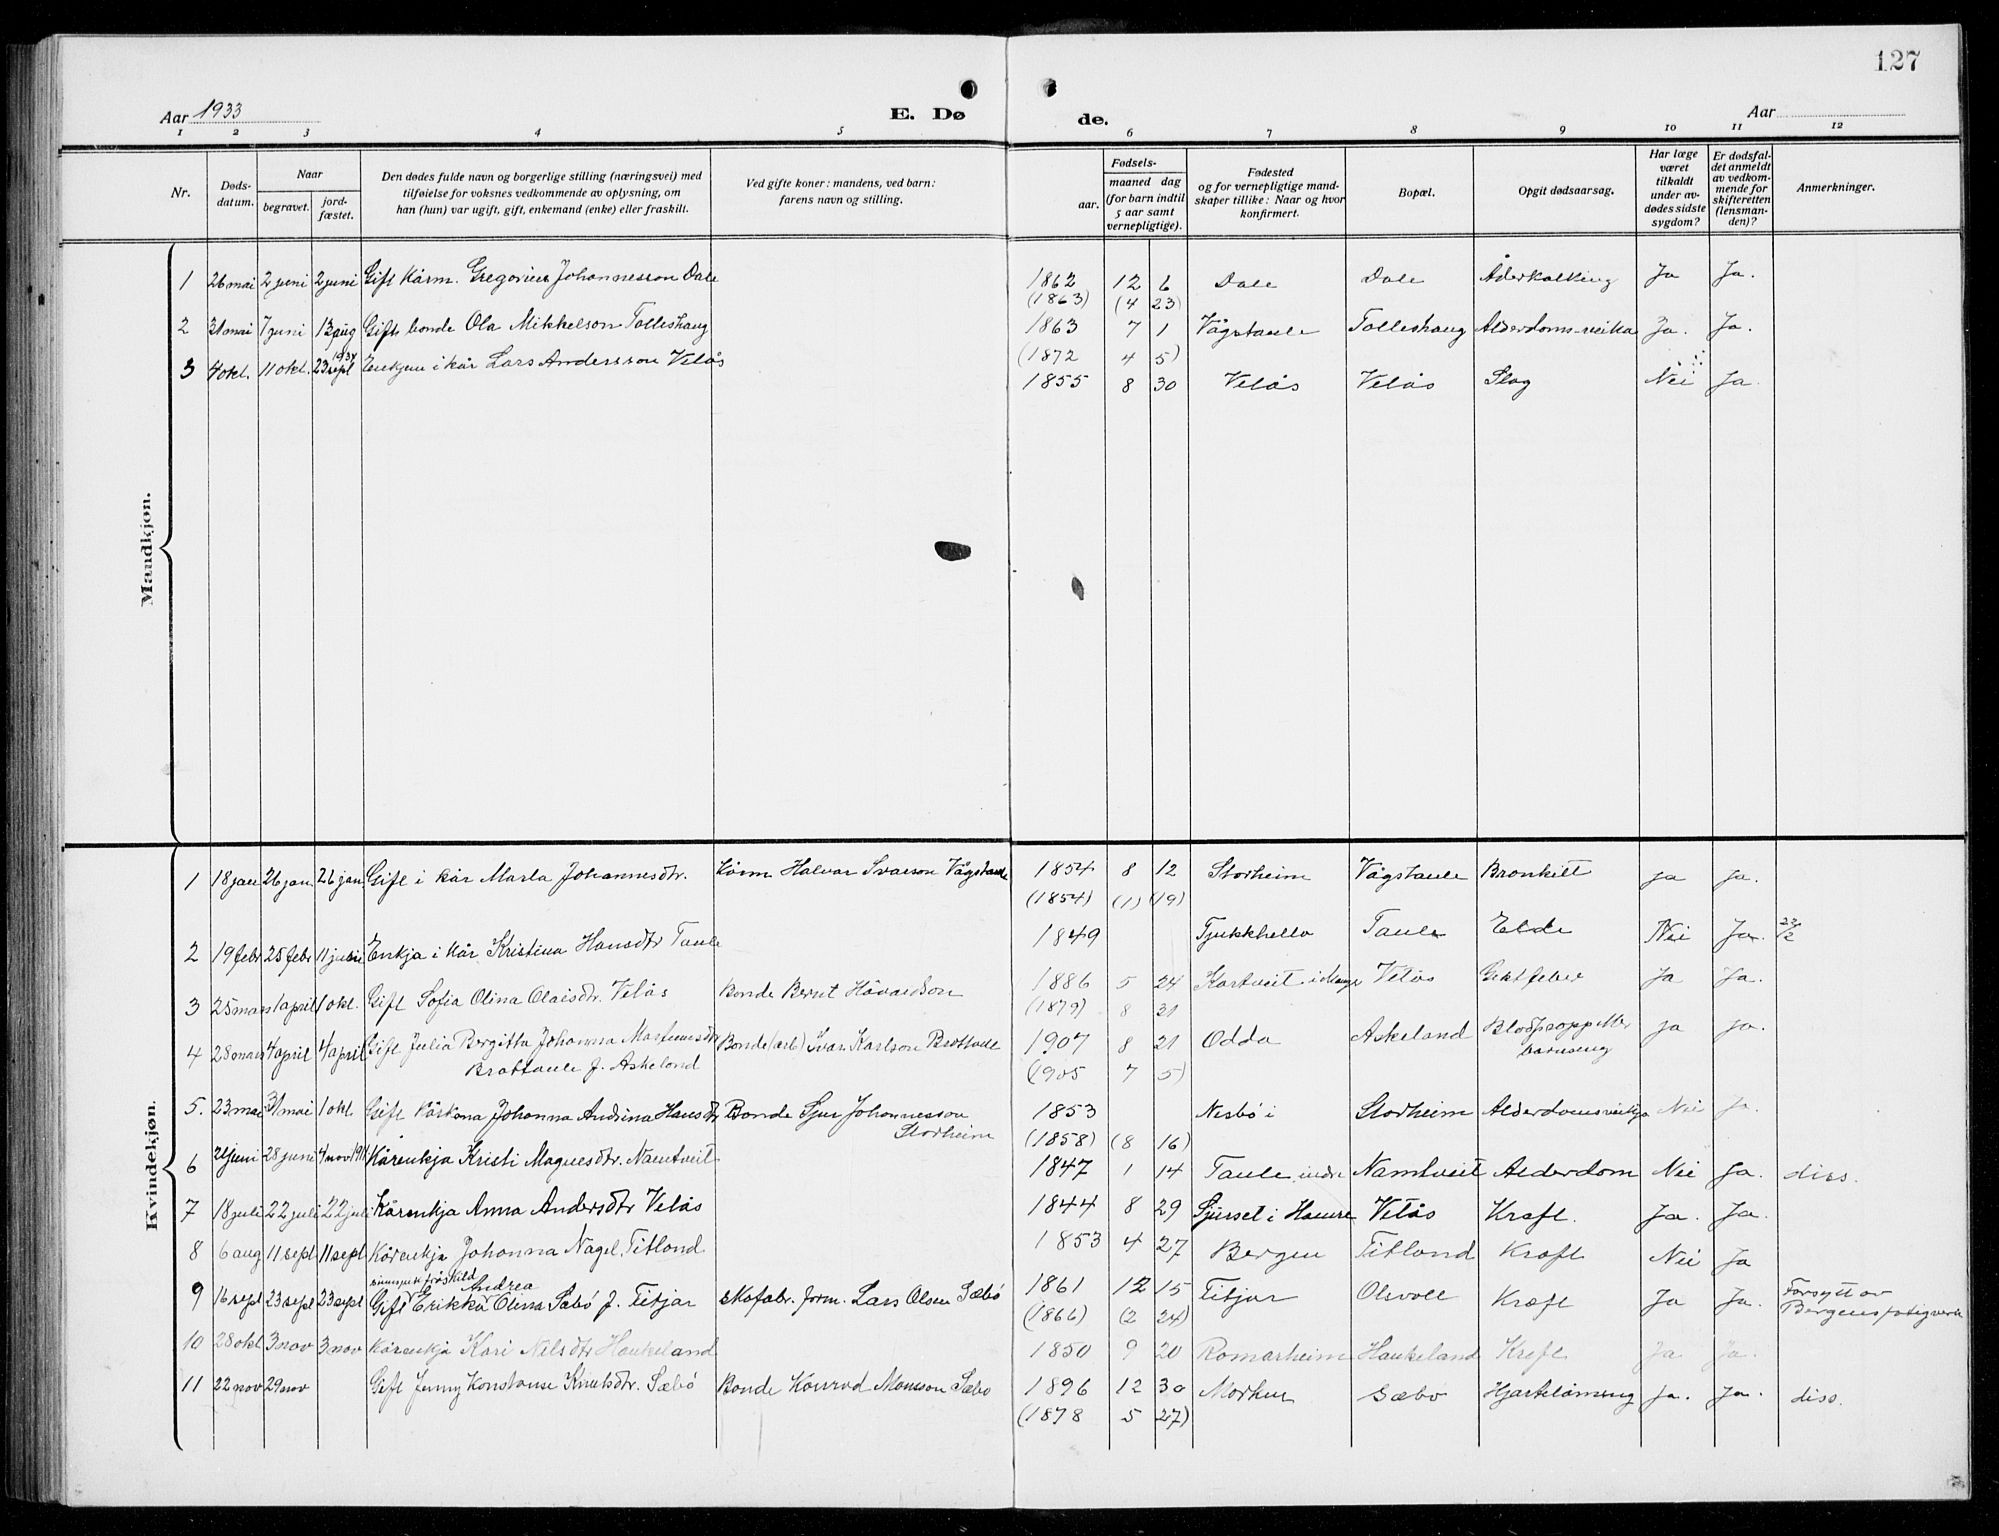 127
Aar 1933
E. Dø
de.
Aar
1 2 3 4 5 6 7 8 9 10 11 12
Nr.
Døds-
datum.
Naar
begravet.
jord-
fæstet.
Den dødes fulde navn og borgerlige stilling (næringsvei) med
tilføielse for voksnes vedkommende av oplysning, om
han (hun) var ugift, gift, enkemand (enke) eller fraskilt.
Ved gifte koner: mandens, ved barn:
farens navn og stilling.
Fødsels-
aar.
maaned dag
(for barn indtil
5 aar samt
vernepligtige).
Fødested
og for vernepligtige mand-
skaper tillike: Naar og hvor
konfirmert.
Bopæl.
Opgit dødsaarsag.
Har læge
været
tilkaldt
under av-
dødes sidste
sygdom?
Er dødsfal-
det anmeldt
av vedkom-
mende for
skifteretten
(lensman-
den)?
Anmerkninger.
Mandkjøn.
1 26 mai 2 juni 2 juni Gift kårm. Gregorius Johannesson Dale 1862 12 6 Dale Dale Åderkalking Ja Ja.
(1863) (4 23)
2 31 mai 7 juni 13 aug Gift bonde Ola Mikkelson Tolleshaug 1863 7 1 Vågstaule Tolleshaug Alderdoms-veika Ja. Ja.
(1872 4 5)
1934
3 4 okt. 11 okt. 23 sept i kår Lars Andersson Velås 1855 8 30 Velås Velås Slag Nei Ja.
Kvindekjøn.
1 18 jan 26 jan. 26 jan Gift i kår Marta Johannesdtr. Kårm Halvar Ivarson Vågstaule 1854 8 12 Storheim Vågstaule Bronkitt Ja Ja.
(1854) (1) (19)
2 19 febr 25 febr 11 juni Enkja i kår Kristina Hansdtr Taule 1849 Tjukkhella Taule Elde Nei Ja. 23/2
3 25 mars 1 april 1 okt. Gift Sofia Olina Olaisdtr. Velås Bonde Bernt Håvardson 1886 5 24 Kartveit i Mange Velås Giktfeber Ja Ja.
(1879) 8 31
4 28 mars 4 april 4 april Gift Julia Bergitta Johanna Martinusdtr Bonde (arb) Ivar Karlson Brottaule 1907 8 21 Odda Askeland Blodpropp etter Ja Ja.
Brottaule f. Askeland (1905 7 5) barnseng
5. 23 mai 31 mai 1 okt. Gift kårkona Johanna Andrina Hansdtr Bonde Sjur Johannesson 1853 Nesbø i Storheim Alderdomsveikja Nei Ja.
Storheim (1858) (8 16)
6 21 juni 28 juni 4 nov Kårenkja Kristi Magnesdtr. Namtveit 1847 1 14 Taule indre Namtveit Alderdom Nei Ja. diss.
7 18 juli 22 juli 22 juli Kårenkja Anna Andersdtr Velås 1844 8 29 Sjurset i Hamre Velås Kreft. Ja. Ja.
8 6 aug 11 sept 11 sept Kårenkja Johanna Nagel. Titland 1853 4 27 Bergen Titland Kreft Nei Ja
fråskild Andrea
9 16 sept 23 sept 23 sept Gift Erikka Olina Sæbø f. Fitjar skofabr. form. Lars Olsen Sæbø 1861 12 15 Fitjar Olsvoll Kreft Ja Ja. Forsytt av
(1866) (2 24) Bergens fatigvern
10 28 okt 3 nov 3 nov Kårenkja Kari Nilsdtr Haukeland 1850 9 20 Romarheim Haukeland Kreft Ja Ja.
11 22 nov 29 nov Gift Jenny Konstanse Knutsdtr. Sæbø Bonde Konrad Monsson Sæbø 1896 12 30 Morken Sæbø Hjartelaming Ja. Ja. diss.
(1878 5 27)